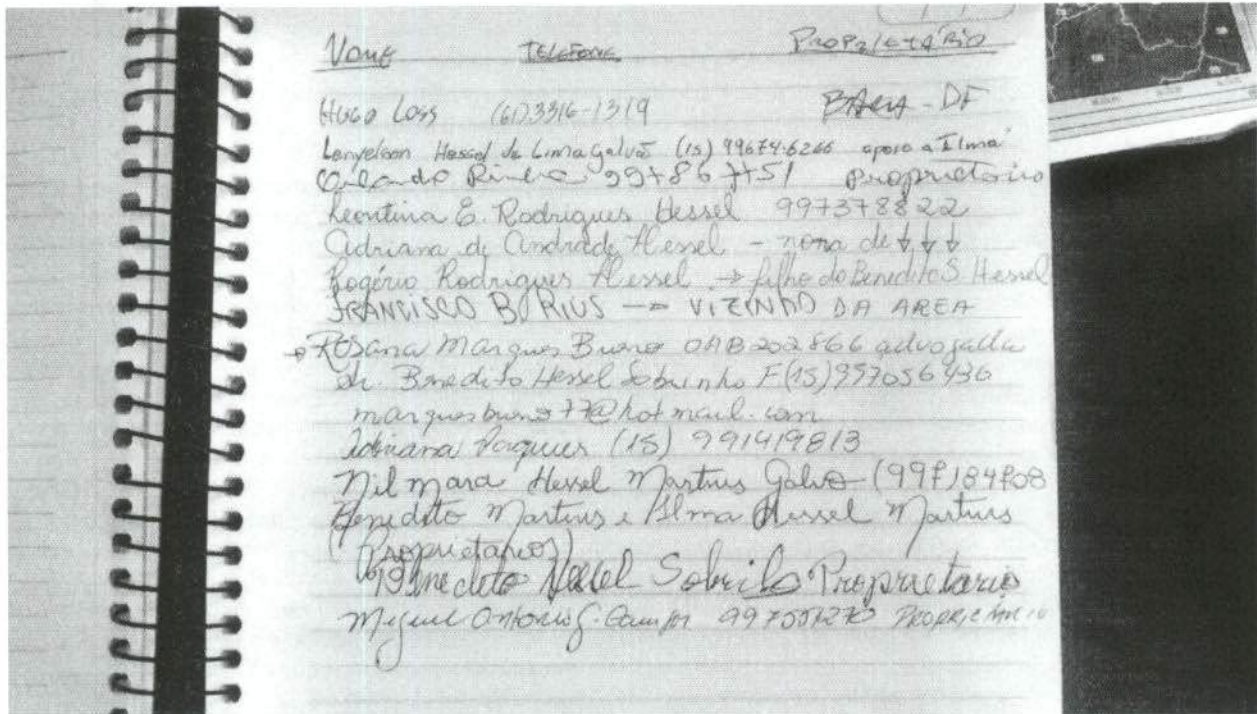 Nome TELEFONE PROPRIETÁRIO
Hugo Loss (61) 3316-1319 - DF
Hessel de Lima Galvão (15) 99674-6266 apoio a Ilma
Orlando 997867751 proprietario
Leontina E. Rodrigues Hessel 997378822
Adriana de Andrade Hessel - nora de ↓ ↓ ↓
Rogério Rodrigues Hessel → filho do Benedito S. Hessel
FRANCISCO B. RIUS → VIZINHO DA AREA
→ Rosana Marques Bueno OAB 202866 advogada
dr. Benedito Hessel Sobrinho F (15) 997056436
marquesbueno77@hotmail.com
Adriana (15) 991419813
Nilmara Hessel Martins Galvão
Benedito Martins e Ilma Hessel Martins
(Proprietarios)
Benedito Hessel Sobrinho Proprietario
Miguel Antonio G. PROPRIETÁRIO